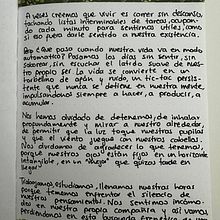 A veces creemos que vivir es correr sin descanso,
tachando listas interminables de tareas, ocupan-
do cada minuto para sentirnos útiles como
si eso fuera darle sentido a nuestra existencia.
Pero ¿qué pasa cuando nuestra vida va en modo
automático? Pasamos los días sin sentir, sin
saborear, sin escuchar el latido suave de nues-
tro propio ser. La vida se convierte en un
torbellino de afán y ruido, un tic-tac persis-
tente que nunca se define en nuestra mente,
impulsándonos siempre a hacer, a producir, a
acumular.
Nos hemos olvidado de detenernos, de inhalar
profundamente y mirar a nuestro alrededor,
de permitir que la luz toque nuestras pupilas
y que el viento juegue con nuestros cabellos.
Nos olvidamos de agradecer lo que tenemos,
porque nuestros ojos están fijos en un horizonte
intangible, en un "algo" que quizás nunca en
llegar
Trabajamos, estudiamos, llenamos nuestras horas
porque tememos enfrentar el silencio de
nuestros pensamientos. Nos sentimos incómo-
dos en nuestra propia compañía y así vamos,